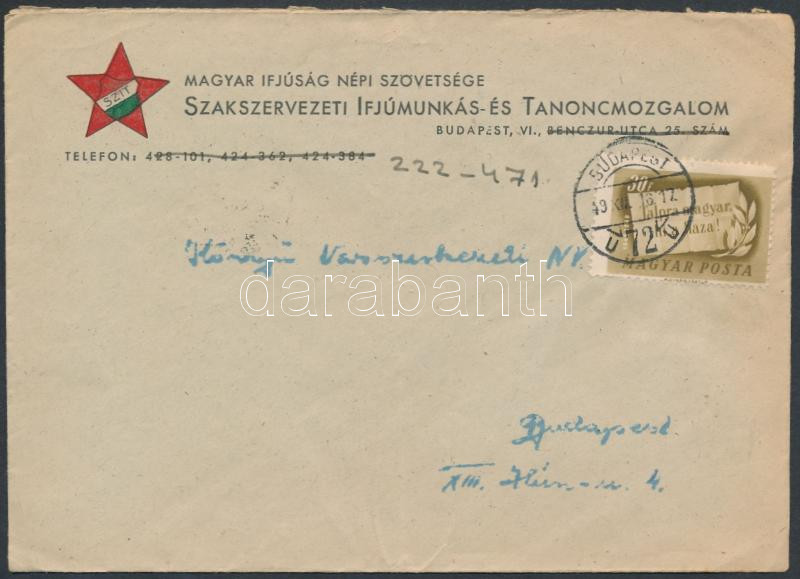 SZIT
MAGYAR IFJÚSÁG NÉPI SZÖVETSÉGE
SZAKSZERVEZETI IFJÚMUNKÁS- ÉS TANONCMOZGALOM
BUDAPEST, VI., BENCZUR-UTCA 25. SZÁM
TELEFON: 428-101, 424-362, 424-384 222-471
BUDAPEST
72
30f
Talpra magyar,
haza!
MAGYAR POSTA
NV.
darabanth
Budapest
XIII. 4.